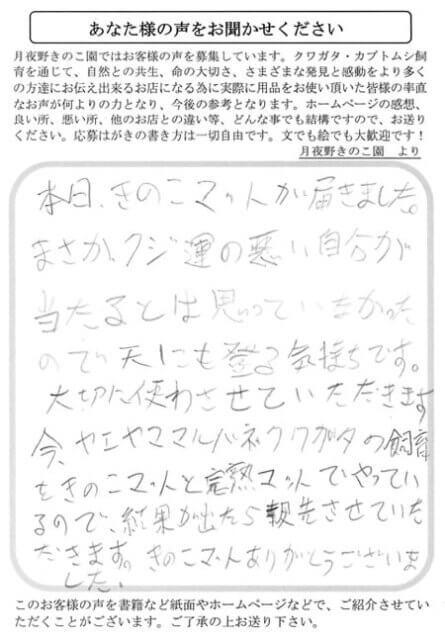 あなた様の声をお聞かせください
月夜野きのこ園ではお客様の声を募集しています。クワガタ・カブトムシ飼
育を通じて、自然との共生、命の大切さ、さまざまな発見と感動をより多く
の方達にお伝え出来るお店になる為に実際に用品をお使い頂いた皆様の率直
なお声が何よりの力となり、今後の参考となります。ホームページの感想、
良い所、悪い所、他のお店との違い等、どんな事でも結構ですので、お送り
ください。応募はがきの書き方は一切自由です。文でも絵でも大歓迎です！
月夜野きのこ園　より
本日、きのこマットが届きました。
まさか、クジ運の悪い自分が
当たるとは思っていなかった
ので、天にも登る気持ちです。
大切に使わさせていただきます
今、ヤエヤママルバネクワガタの飼育
をきのこマットと完熟マットでやってい
るので、結果が出たら報告させていた
だきます。きのこマットありがとうございま
した。
このお客様の声を書籍など紙面やホームページなどで、ご紹介させてい
ただくことがございます。ご了承の上お送り下さい。